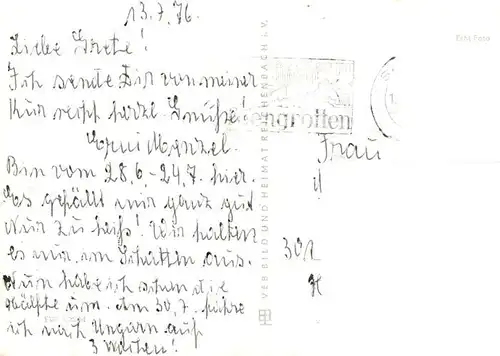 13.7.76.
Liebe Grete!
Ich sende Dir von meiner
Kur recht herzl. Grüße!
Erni Menzel.
Bin vom 28.6 - 24.7. hier.
Es gefällt mir ganz gut
Nur zu heiß! Wir halten
es nur im Schatten aus.
Nun habe ich schon die
Hälfte um. Am 30.7. fahre
ich nach Ungarn auf
3 Wochen!
VEB BILD UND HEIMAT REICHENBACH I. V.
Echt Foto
Frau
301